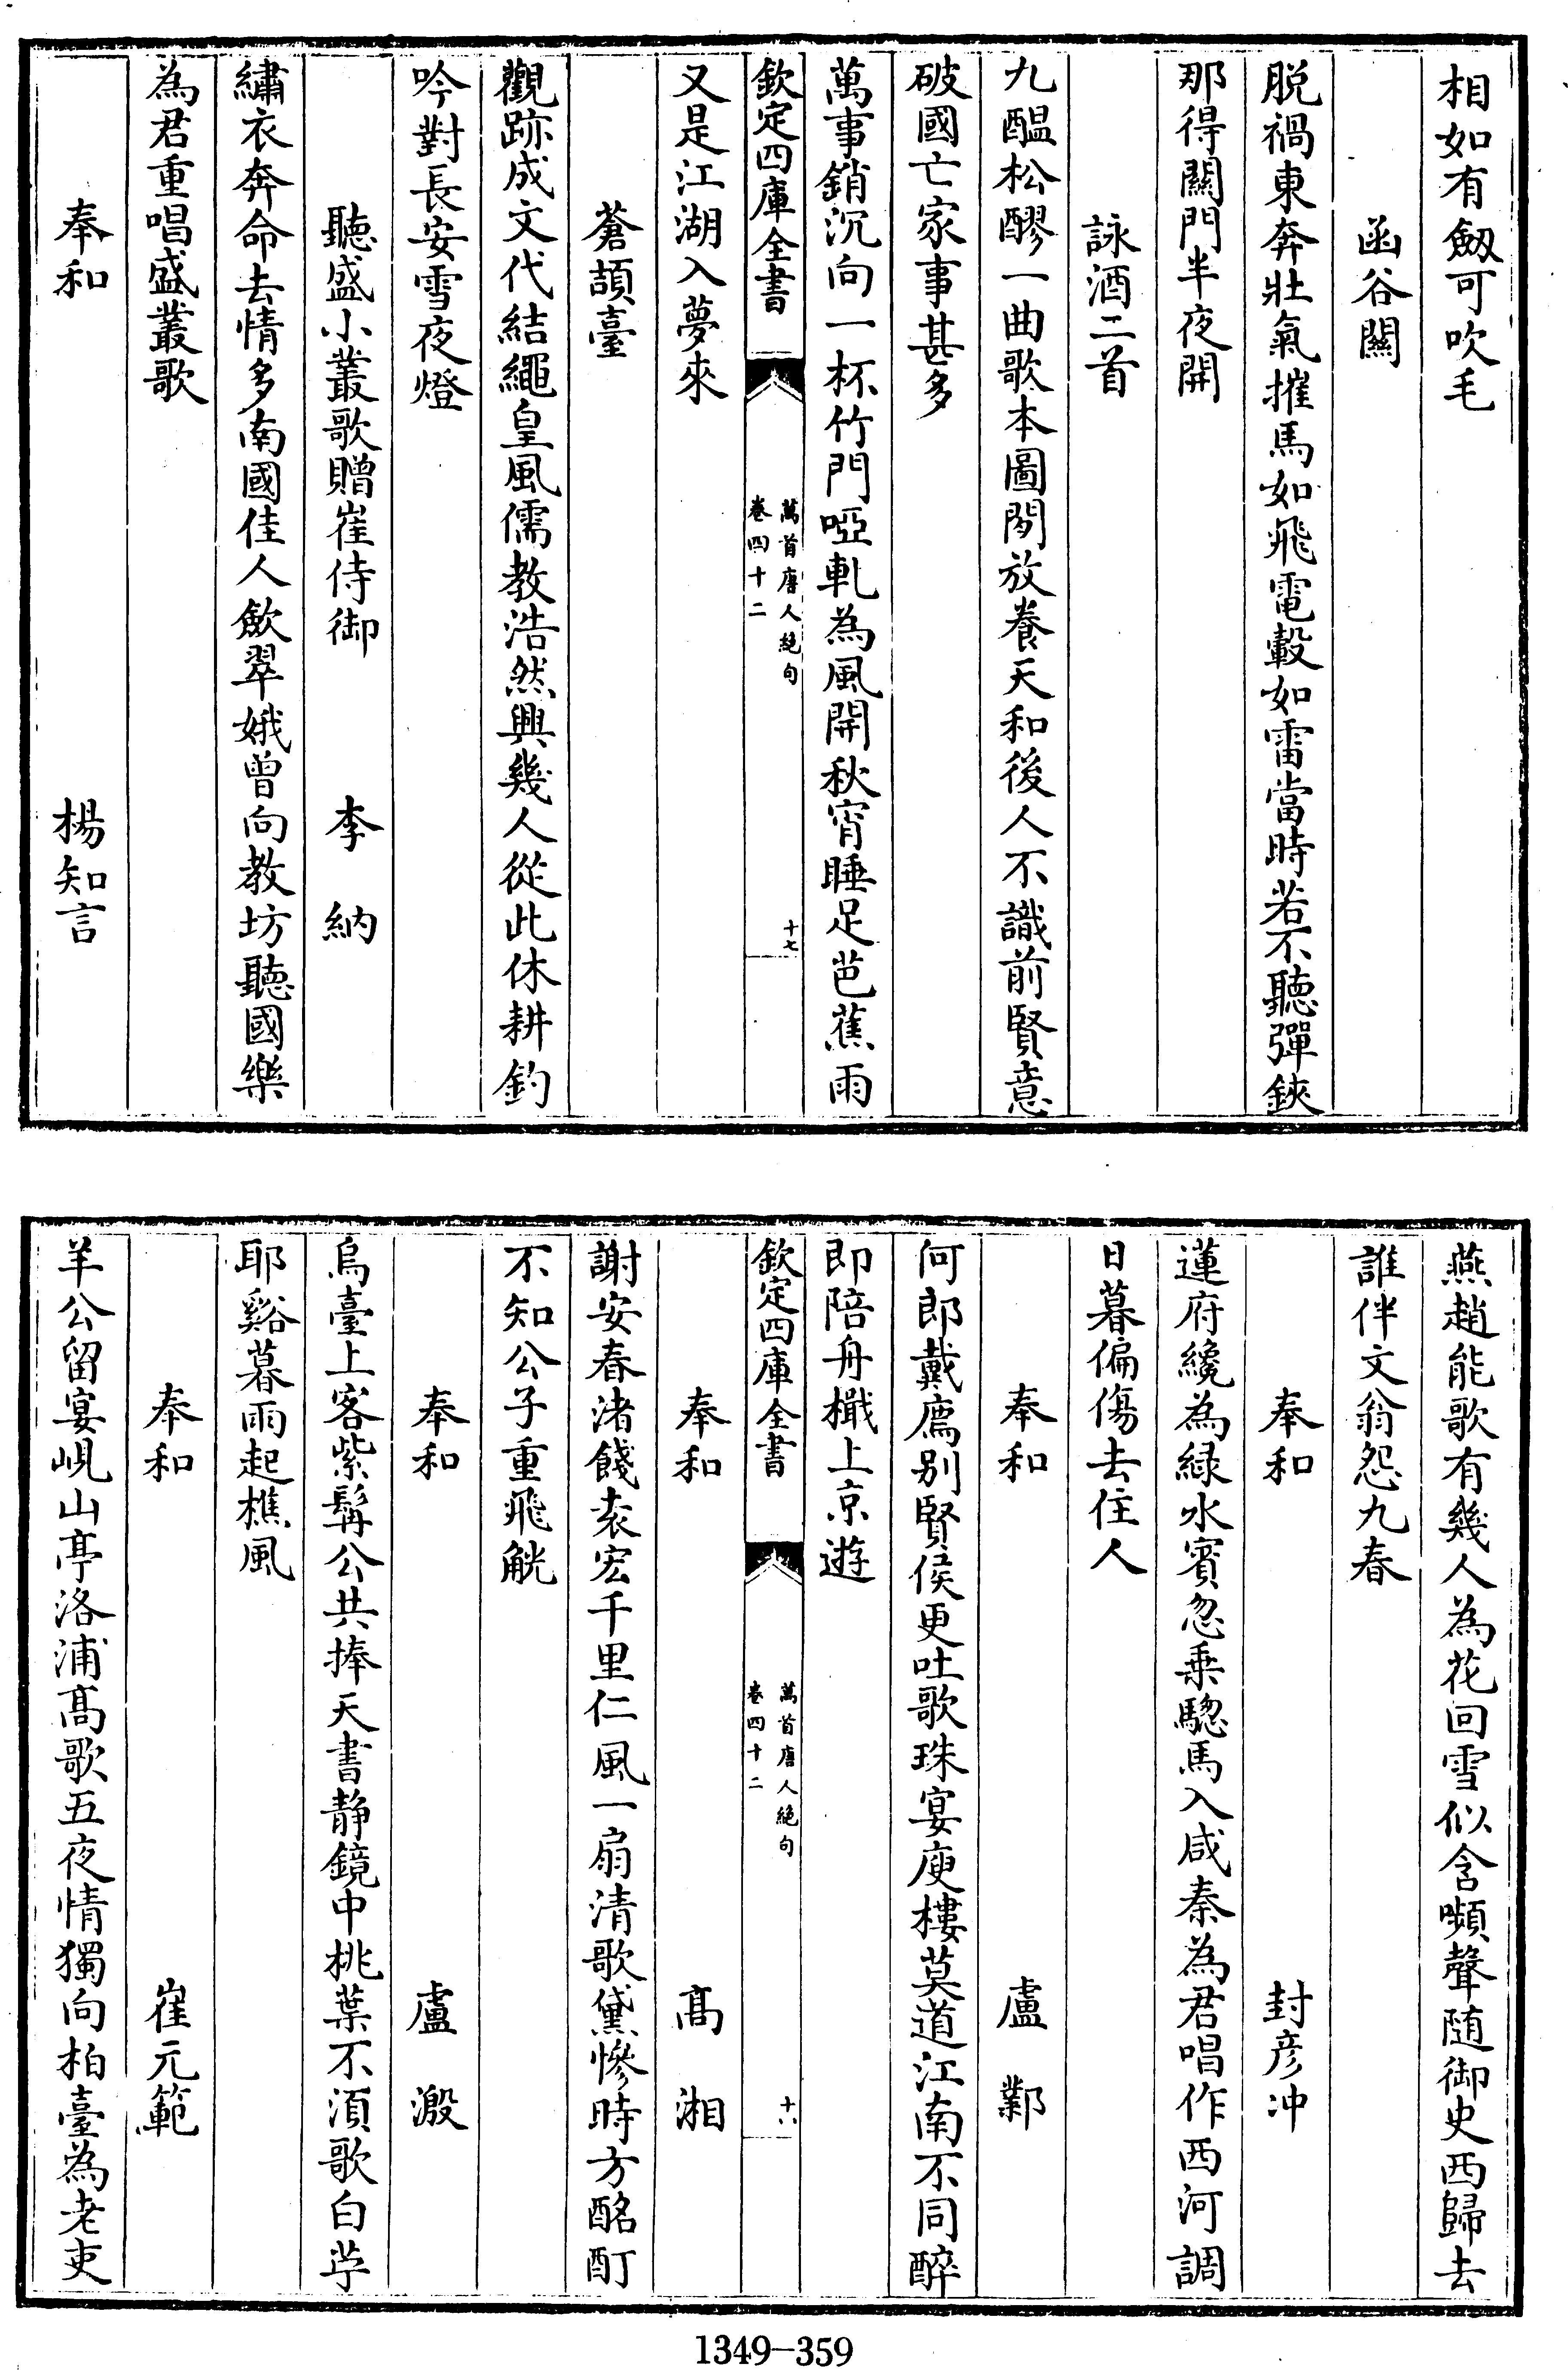 相如有劔可吹毛
函谷關
脱禍東奔壯氣摧馬如飛電轂如雷當時若不聽彈鋏
那得關門半夜開
詠酒二首
九醞松醪一曲歌本圖閑放養天和後人不識前賢意
破國亡家事甚多
萬事銷沉向一杯竹門啞軋為風開秋宵睡足芭蕉雨
欽定四庫全書
萬首唐人絶句
卷四十二
十七
又是江湖入夢來
蒼頡臺
觀跡成文代結繩皇風儒教浩然興幾人從此休耕釣
吟對長安雪夜燈
聽盛小叢歌贈崔侍御 李納
繡衣奔命去情多南國佳人歛翠娥曽向教坊聽國樂
為君重唱盛叢歌
奉和 楊知言
燕趙能歌有幾人為花回雪似含嚬聲随御史西歸去
誰伴文翁怨九春
奉和 封彦冲
蓮府纔為緑水賓忽乗驄馬入咸秦為君唱作西河調
日暮偏傷去住人
奉和 盧鄴
何郎戴廌别賢侯更吐歌珠宴庾樓莫道江南不同醉
即陪舟檝上京遊
欽定四庫全書
萬首唐人絶句
卷四十二
十八
奉和 髙湘
謝安春渚餞袁宏千里仁風一扇清歌黛慘時方酩酊
不知公子重飛觥
奉和 盧溵
烏臺上客紫髯公共捧天書静鏡中桃葉不湏歌白苧
耶谿暮雨起樵風
奉和 崔元範
羊公留宴峴山亭洛浦髙歌五夜情獨向柏臺為老吏
1349-359